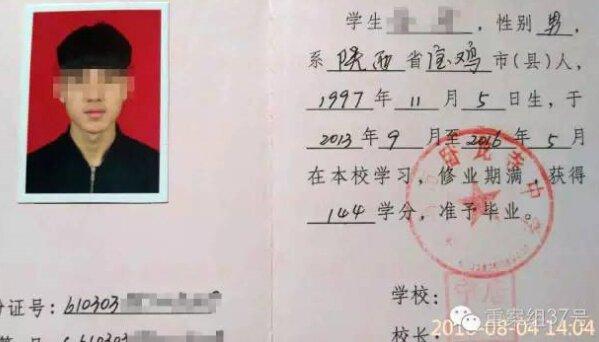 学生 ，性别 男，
系 陕西 省 宝鸡 市(县)人，
1997 年 11 月 5 日生，于
2013 年 9 月至 2016 年 5 月
在本校学习，修业期满，获得
144 学分，准予毕业。
份证号：610303
学校：
重案组37号
校长：
2016-08-04 14:04